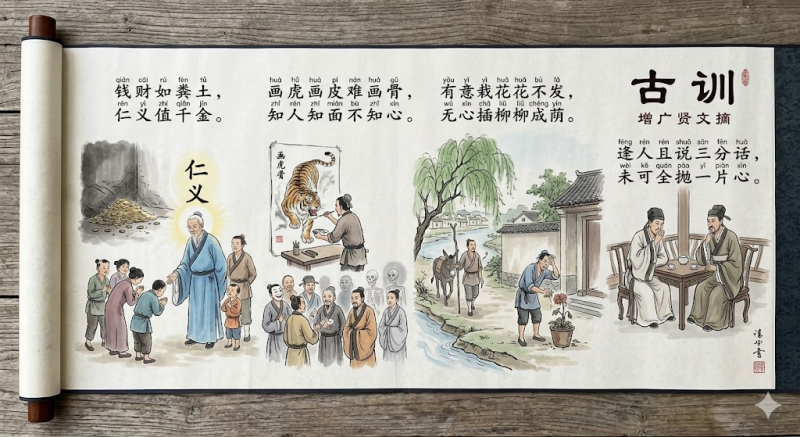 古训
增广贤文摘
féng rén rén shuō sān fēn huà
逢人且说三分话，
wèi kě quán pāo yī piàn xīn
未可全抛一片心。
yǒu yì yì huā huā bù fà
有意栽花花不发，
wú xīn chā liǔ liǔ chéng yìn
无心插柳柳成荫。
huà hǔ huà pí nán huà gǔ
画虎画皮难画骨，
zhī rén zhī miàn bù zhī xīn
知人知面不知心。
画虎骨
qián cái rú fèn tǔ
钱财如粪土，
rén yì zhí qiān jīn
仁义值千金。
仁义